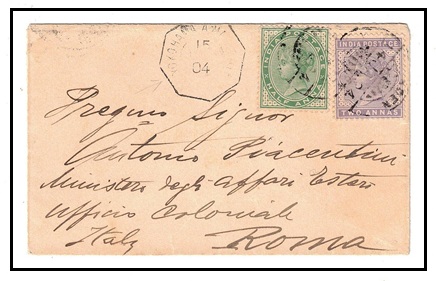 15
04
INDIA POSTAGE
HALF ANNA
INDIA POSTAGE
TWO ANNAS
Pregmo Signor
Antonio Piacentini
Ministero degli affari Esteri
Ufficio Coloniale
Italy Roma